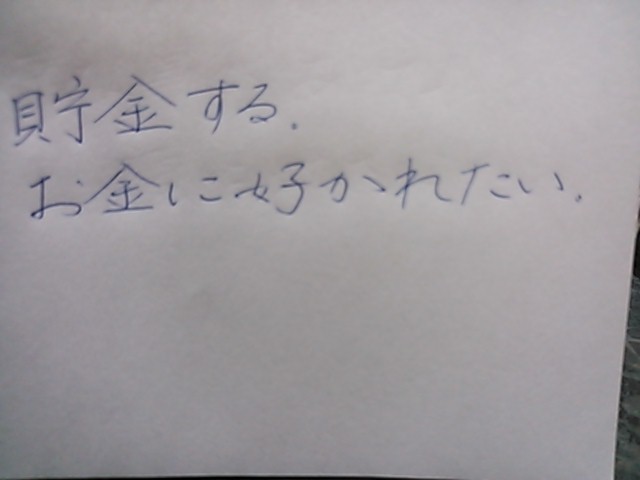 貯金する.
お金に好かれたい.